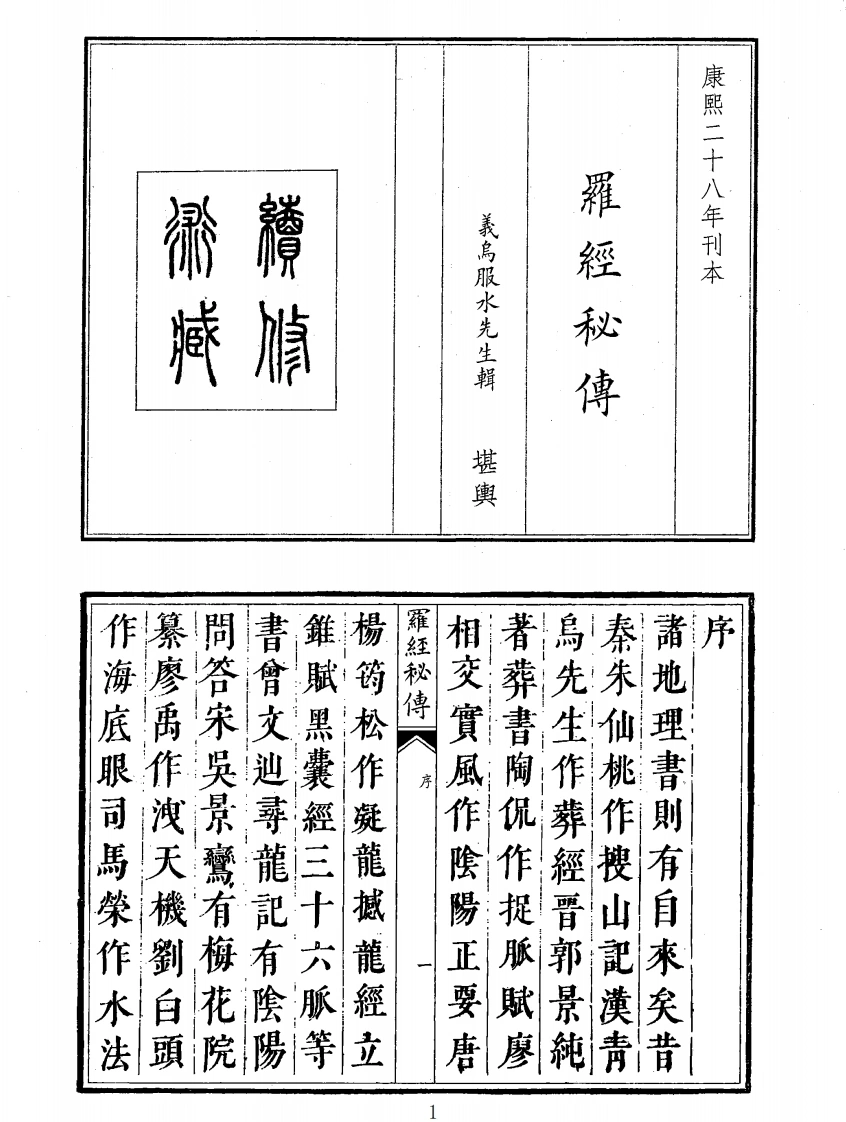 康熙二十八年刊本
羅經秘傳
義烏服水先生輯　堪輿
續修
術藏
序
諸地理書則有自來矣昔
秦朱仙桃作搜山記漢青
烏先生作葬經晉郭景純
著葬書陶侃作捉脈賦廖
相交實風作陰陽正要唐
羅經秘傳　序　一
楊筠松作凝龍撼龍經立
錐賦黑囊經三十六脈等
書曾文辿尋龍記有陰陽
問答宋吳景鸞有梅花院
纂廖禹作洩天機劉白頭
作海底眼司馬榮作水法
1